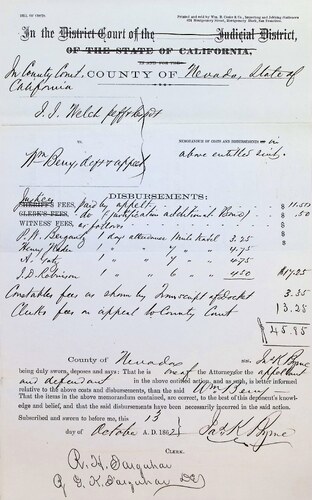 BILL OF COSTS.
Printed and sold by Wm. B. Cooke & Co., Importing and Jobbing Stationers
In the District Court of the Judicial District,
OF THE STATE OF CALIFORNIA,
In County Court, COUNTY OF Nevada, State of
California
J. J. Welch peff & respt
TO
MEMORANDUM OF COSTS AND DISBURSEMENTS in
Wm Berry, deft & appet
above entitled suit.
DISBURSEMENTS:
Justices
SHERIFF'S FEES, paid by appelt, $ 11.50
CLERK'S FEES, do (Justification additional Bond) $ .50
WITNESS' FEES, as follows
1 day attendance 3.25
Henry 1 " " 4.75
A. 1 " 7 " 4.75
J. D. Robinson 1 " 6 " 4.50 $17.25
Constables fees as shown by Transcript of Docket 3.35
Clerks fees on appeal to County Court 13.25
$45.85
County of Nevada ss. Jas K Byrne
being duly sworn, deposes and says: That he is one of the Attorneys for the appellant
and defendant in the above entitled action, and as such, is better informed
relative to the above costs and disbursements, than the said Wm Berry
That the items in the above memorandum contained, are correct, to the best of this deponent's
knowledge and belief, and that the said disbursements have been necessarily incurred in the said action.
Subscribed and sworn to before me, this 13
day of October A. D. 1862 Jas K Byrne
CLERK.
R. H. Farquhar
By G. K. Farquhar